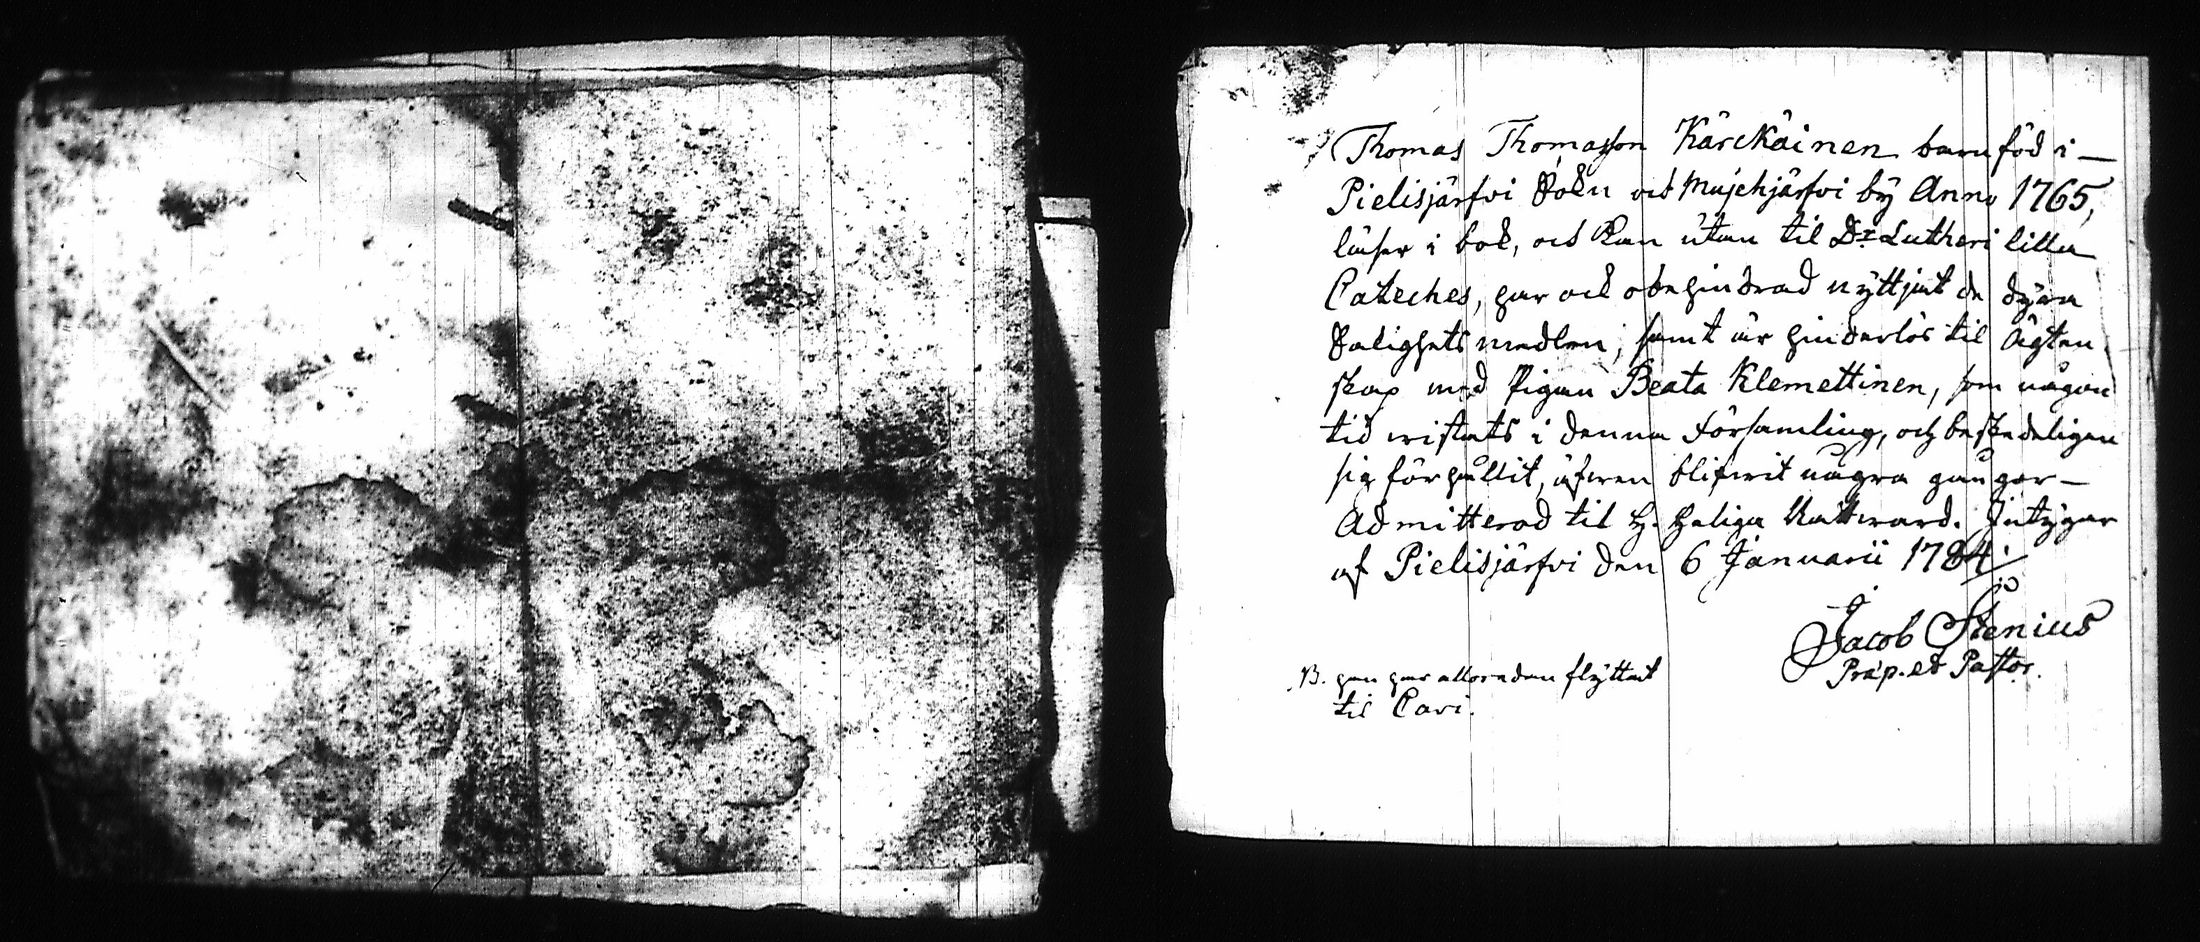 Thomas Thomasson Kärckäinen barnföd i —
Pielisjärfvi Sokn och Mujehjärfvi bÿ Anno 1765,
läser i bok, och kan utan til Dr Lutheri lilla
Cateches, har ock obehindrad nÿttjat de dÿra
Salighets medlen, samt är hinderlös til Ägten
skap med Pigan Beata Klemettinen, som någon
tid vistats i denna Församling, och beskedeligen
sig förhållit, äfwen blifwit några gånger —
Admitterad til H. Heliga Nattward. Intÿgar
af Pielisjärfvi den 6 Januarii 1784 ./.
Jacob Stenius
Præp. et Pastor.
NB. han har allaredan flÿttat
til Cavi.